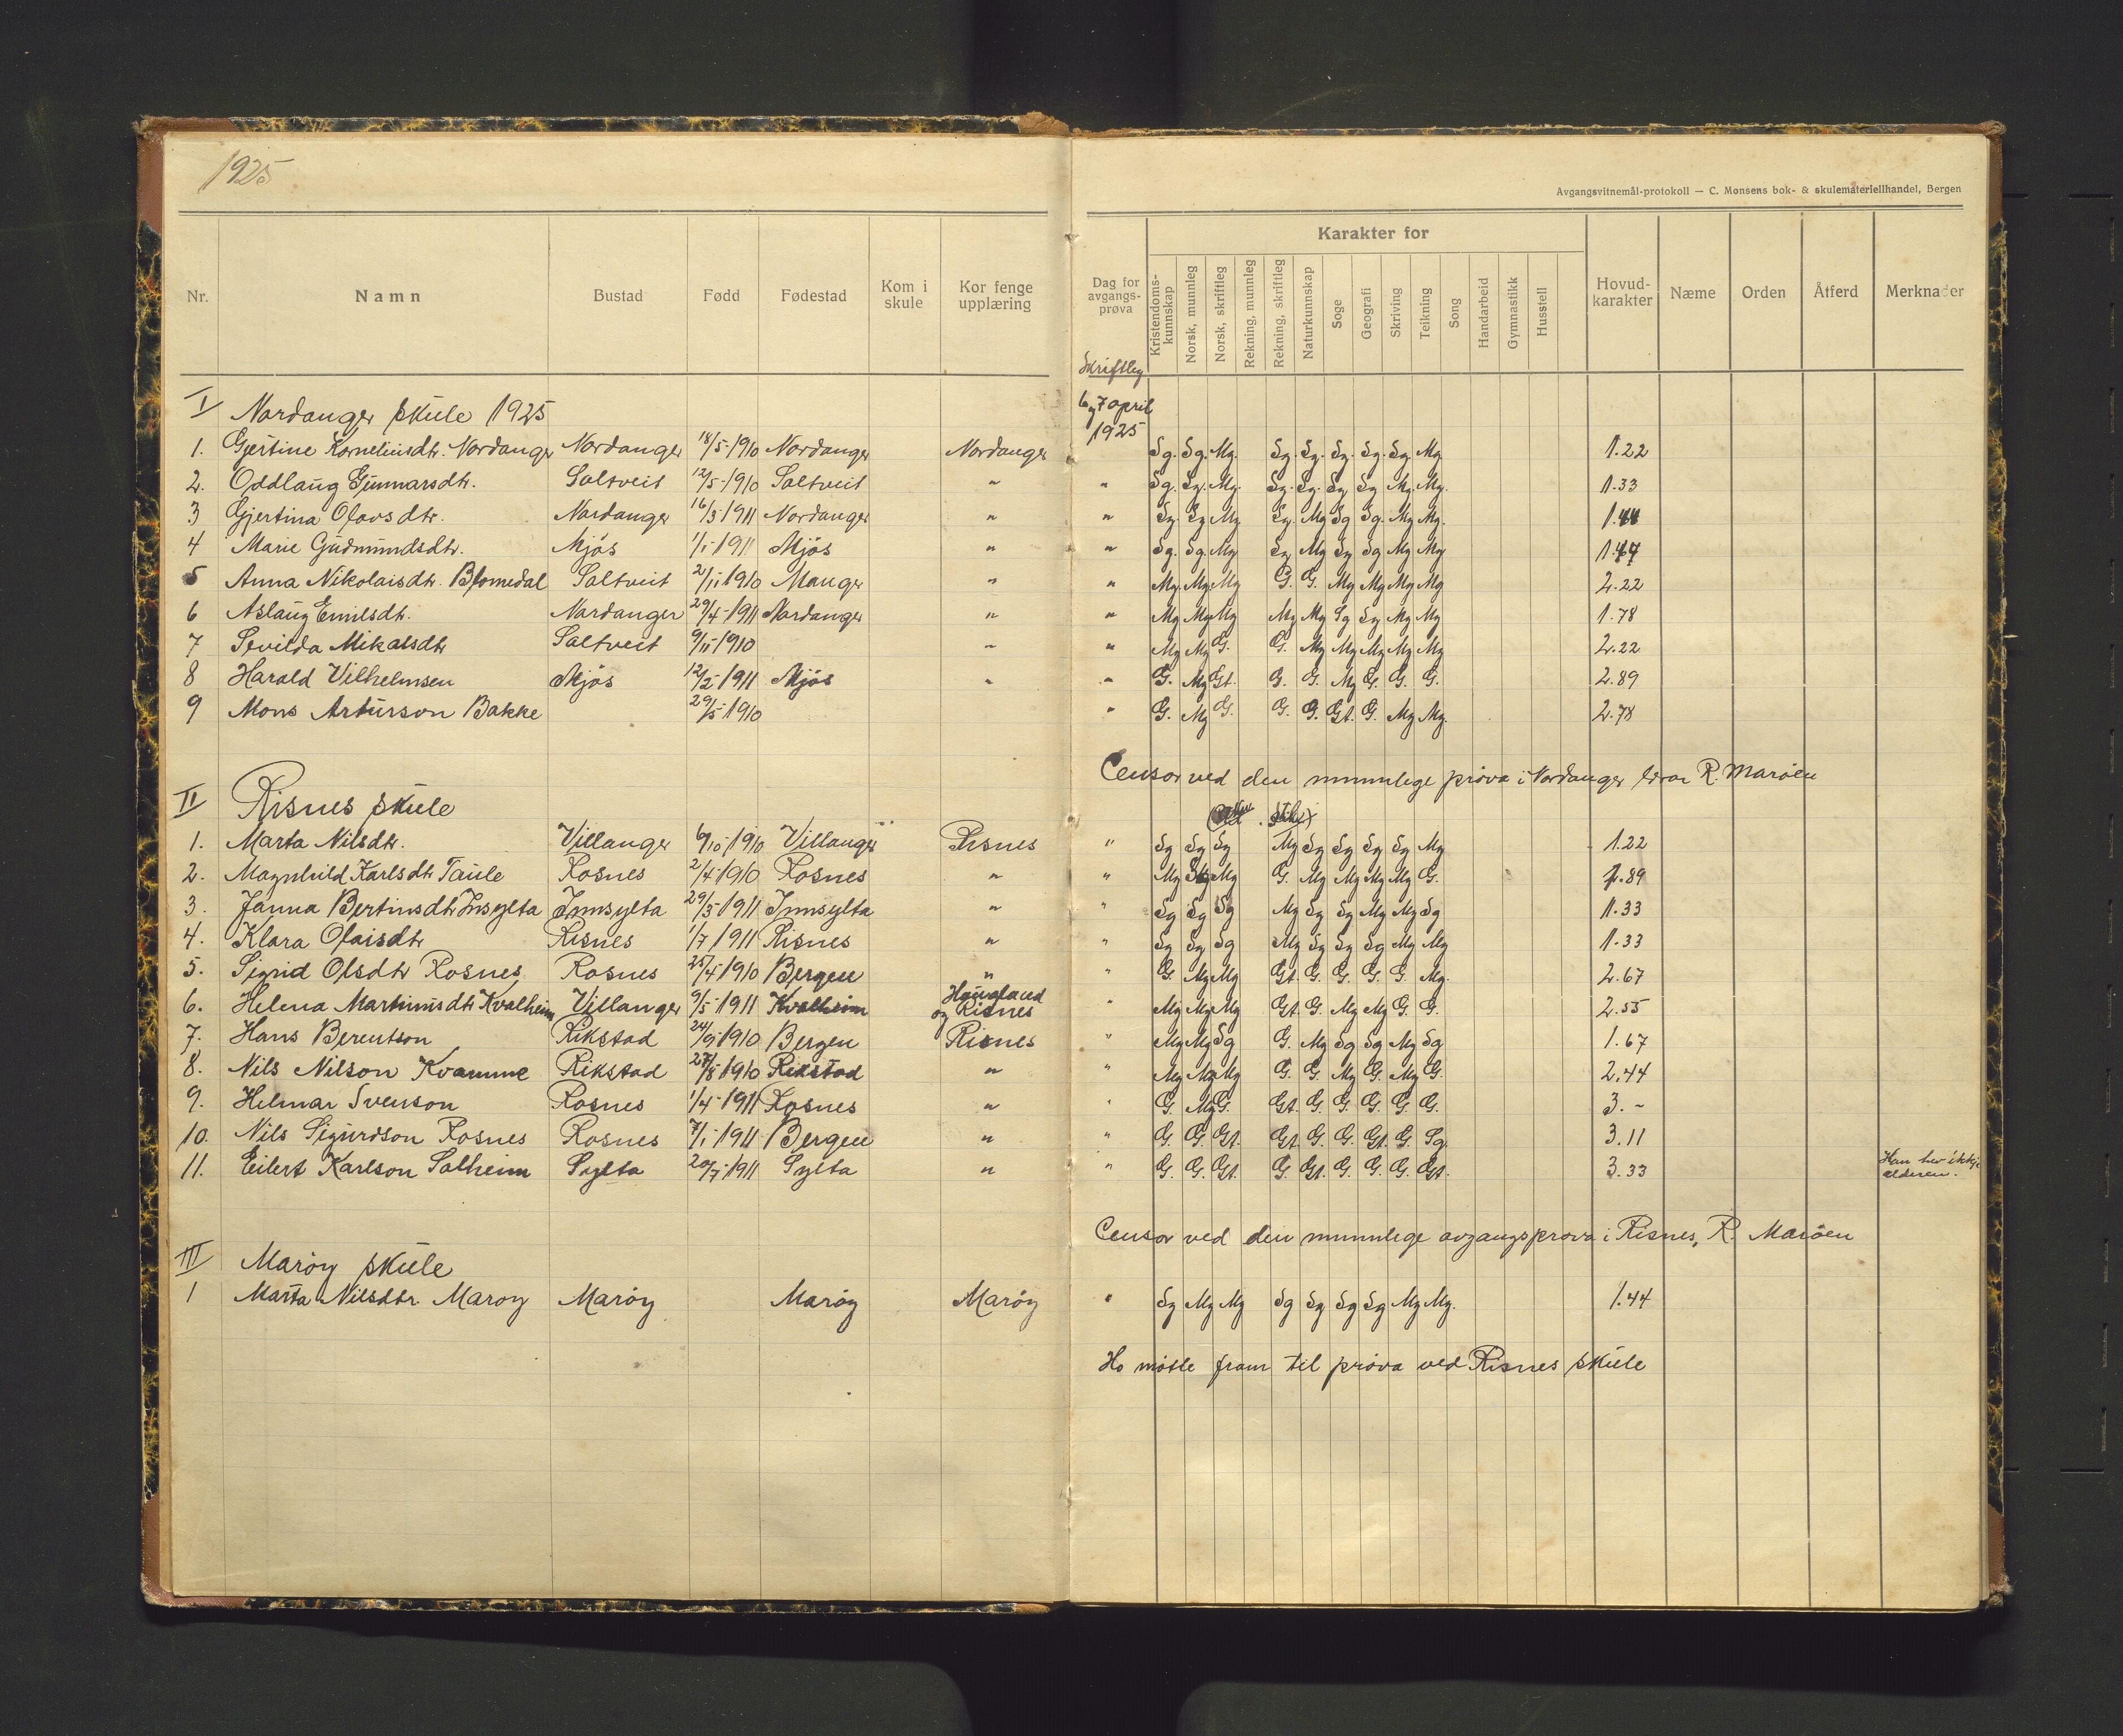 1925
Avgangsvitnemål-protokoll — C. Monsens bok- & skulemateriellhandel, Bergen
Nr. Namn Bustad Fødd Fødestad Kom i skule Kor fenge upplæring Dag for avgangs-prøva Karakter for Hovud-karakter Næme Orden Åtferd Merknader
Kristendoms-kunnskap Norsk, munnleg Norsk, skriftleg Rekning, munnleg Rekning, skriftleg Naturkunnskap Soge Geografi Skriving Teikning Song Handarbeid Gymnastikk Husstell
Skriftleg
I Nordanger skule 1925 6 og 7 april 1925
1. Gjertine Korneliusdtr. Nordanger Nordanger 18/5-1910 Nordanger Nordanger Sg. Sg. Mg. Sg. Sg. Sg. Sg. Sg. Mg 1.22
2. Oddlaug Gunnarsdtr. Saltveit 12/5-1910 Saltveit " " Sg. Sg. Mg. Sg. Sg. Sg Sg Mg. Mg. 1.33
3 Gjertina Olavsdtr. Nordanger 16/3 1911 Nordanger " " Sg. Sg Mg Sg. Mg Sg Sg. Mg Mg. 1.44
4 Marie Gudmundsdtr. Mjøs 1/1-1911 Mjøs " " Sg. Sg. Mg Sg Mg Sg Sg Mg Mg
5 Anna Nikolaisdtr. Blomedal Saltveit 2/11 1910 Manger " " Mg. Mg. Mg G. G. Mg Mg Mg Mg 2.22
6 Aslaug Emilsdtr. Nordanger 29/4-1911 Nordanger " " Mg Mg Mg Mg Mg Sg Sg Mg Mg 1.78
7 Sevilda Mikalsdtr Saltveit 9/11-1910 " " Mg Mg G. G. Mg Mg Mg Mg Mg 2.22
8 Harald Vilhelmsen Mjøs 12/2-1911 Mjøs " " G. Mg Gt. G. G. Mg G. G. G. 2.89
9 Mons Arturson Bakke 29/5-1910 " G. Mg G. G. G. Gt. G. Mg Mg. 2.78
Censor ved den munnlege prøva i Nordanger lærar R. Marøen
II Risnes skule
1. Marta Nilsdtr. Villanger 6/10-1910 Villanger Risnes " Sg Sg Sg Mg Sg Sg Sg Sg Mg 1.22
2. Magnhild Karlsdtr Taule Rosnes 2/4-1910 Rosnes " " Mg Mg G. Mg Mg Mg Mg G. 1.89
3. Janna Bertinsdtr Insylta Innsylta 29/3 1911 Innsylta " " Sg Sg Sg Mg Sg Sg Mg Mg Sg 1.33
4. Klara Olaisdtr Risnes 1/7 1911 Risnes " " Sg Sg Sg Mg Sg Sg Sg Mg Mg 1.33
5. Sigrid Olsdtr Rosnes Rosnes 25/4-1910 Bergen " " G. Mg Mg Gt. G. G. G. G. Mg. 2.67
6. Helena Martinusdtr Kvalheim Villanger 9/5-1911 Kvalheim Haugland og Risnes " Mg Mg Mg Gt. G. Mg Mg G. G. 2.55
7. Hans Berentson Rikstad 24/9-1910 Bergen Risnes " Mg Mg Sg G. Mg Sg Sg Mg Sg 1.67
8. Nils Nilson Kvamme Rikstad 27/8 1910 Rikstad " " Mg Mg Mg G. G. Mg G. Mg G. 2.44
9. Helmar Svenson Rosnes 1/4-1911 Rosnes " " G. Mg G. Gt. G. G. G. G. G. 3.-
10. Nils Sigurdson Rosnes Rosnes 7/1-1911 Bergen " " G. G. Gt. Gt. G. G. Gt. G. Sg 3.11
11. Eilert Karlson Solheim Sylta 20/7-1911 Sylta " " G. G. Gt. G. Gt. G. G. G. Gt. 3.33 Han hev ikkje alderen.
Censor ved den munnlege avgangsprøva i Risnes, R. Marøen
III Marøy skule
1 Marta Nilsdtr. Marøy Marøy Marøy Marøy " Sg Mg Mg Sg Sg Sg Sg Mg Mg. 1.44
Ho møtte fram til prøva ved Risnes skule